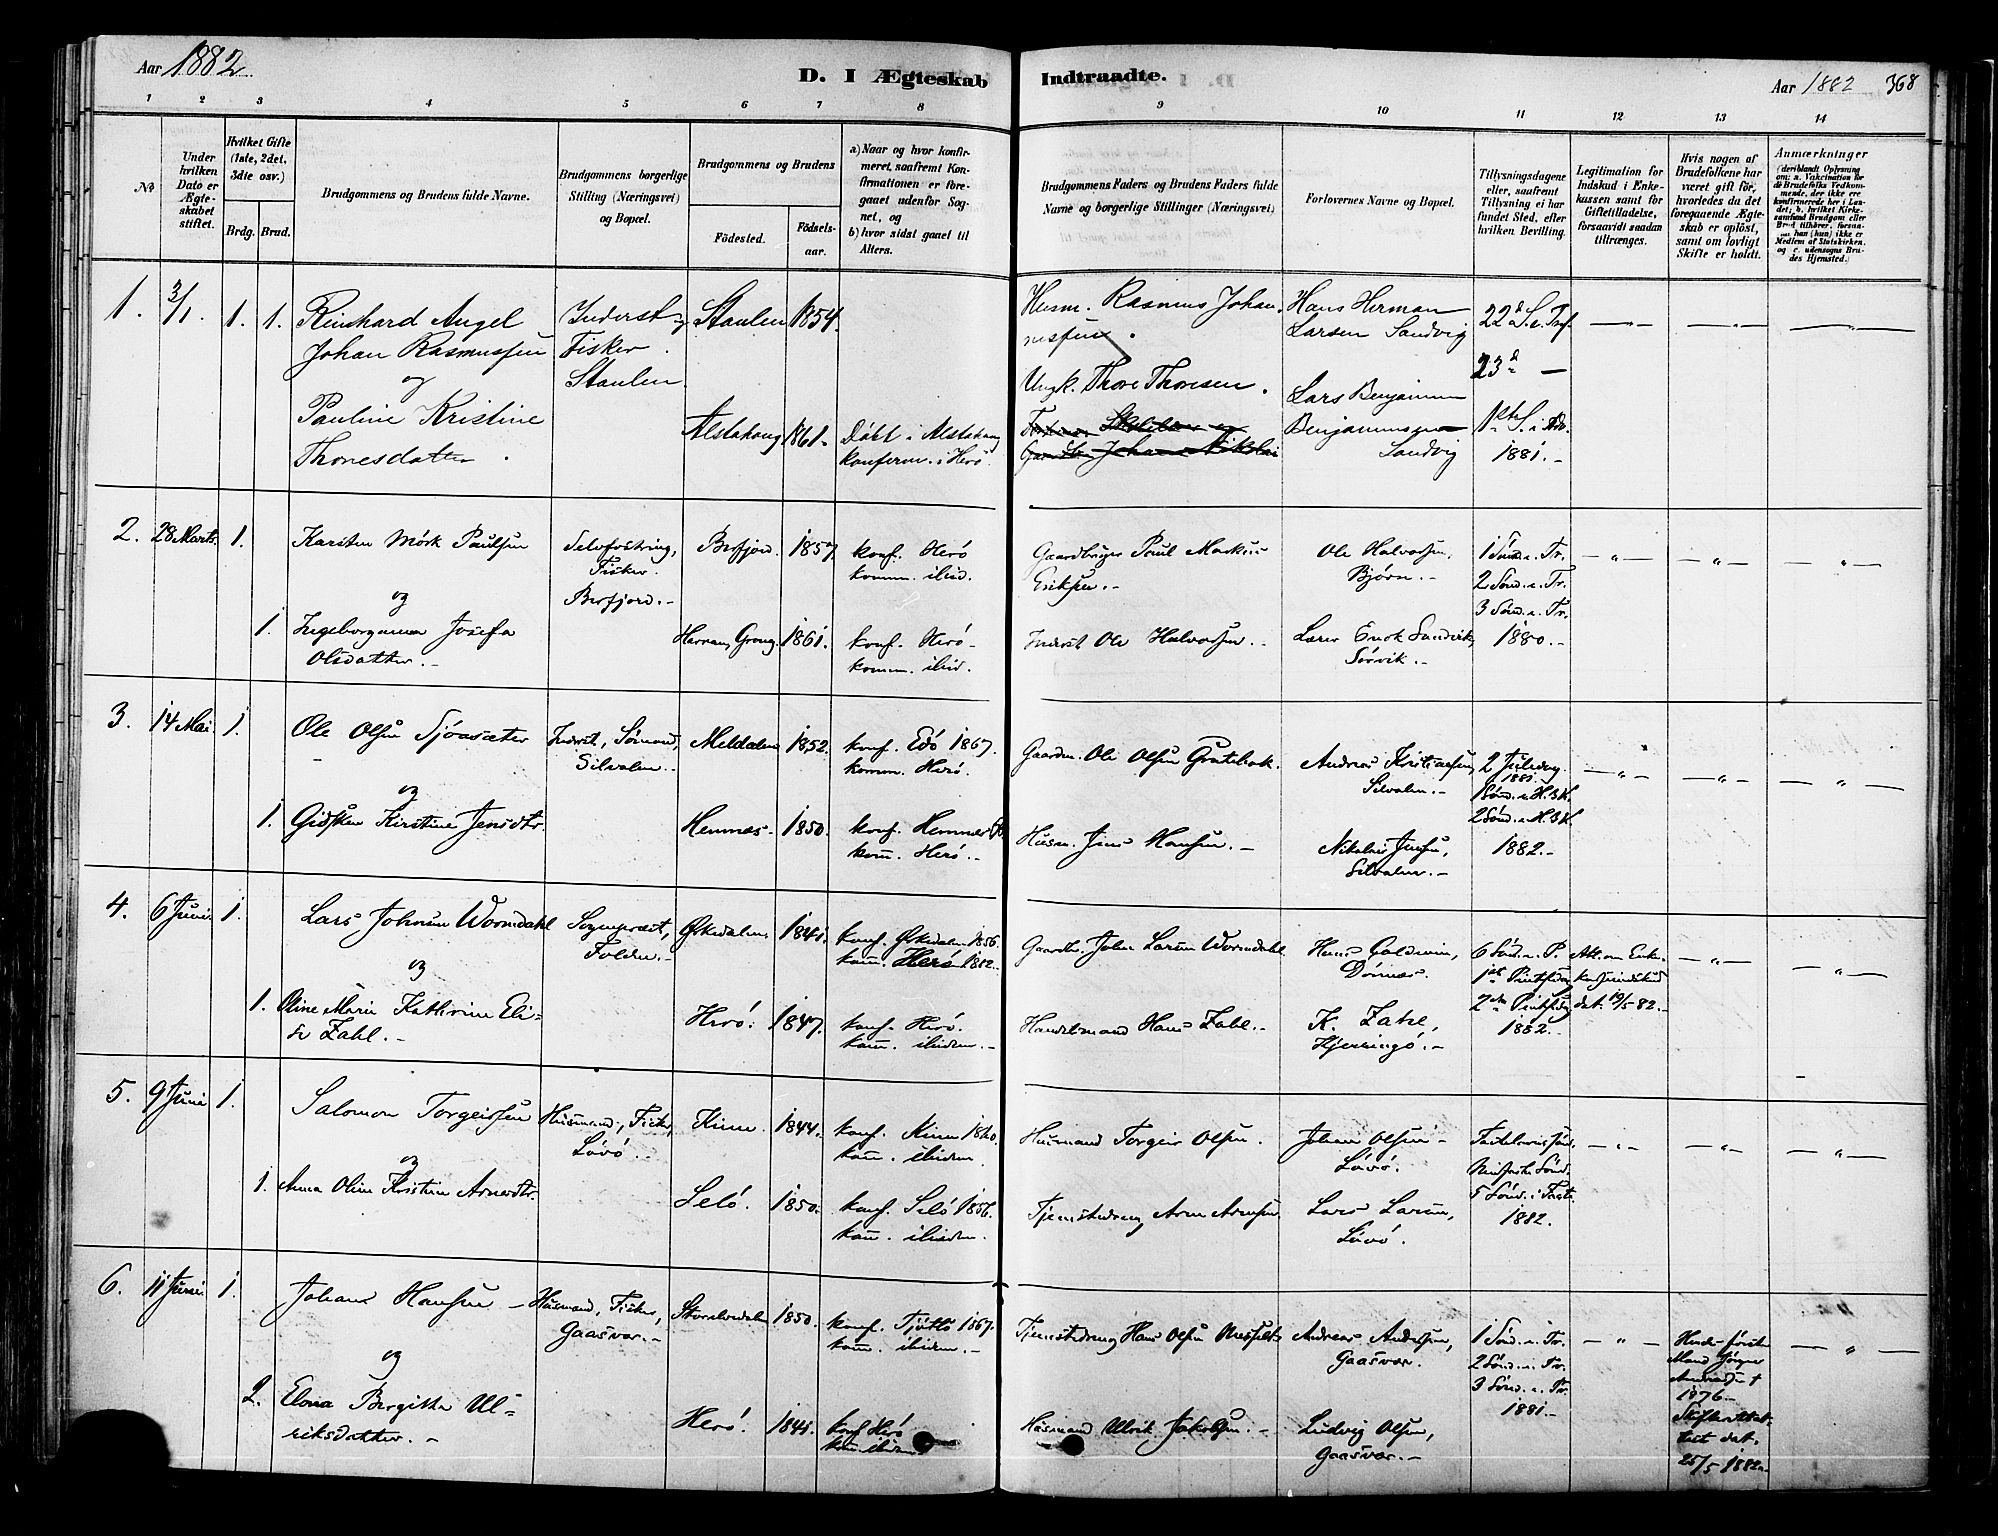 Aar 1882.
D. I Ægteskab Indtraadte.
Aar 1882 368
1 2 3 4 5 6 7 8 9 10 11 12 13 14
No
Under hvilken Dato er Ægteskabet stiftet.
Hvilket Gifte (1ste, 2det, 3die osv.)
Brdg. Brud.
Brudgommens og Brudens fulde Navne.
Brudgommens borgerlige Stilling (Næringsvei) og Bopæl.
Brudgommens og Brudens
Födested. Födselsaar.
a) Naar og hvor konfirmeret, saafremt Konfirmationen er foregaaet udenfor Sognet, og
b) hvor sidst gaaet til Alters.
Brudgommens Faders og Brudens Faders fulde Navne og borgerlige Stillinger (Næringsvei)
Forlovernes Navne og Bopæl.
Tillysningsdagene eller, saafremt Tillysning ei har fundet Sted, efter hvilken Bevilling.
Legitimation for Indskud i Enkekassen samt for Giftetilladelse, forsaavidt saadan tiltrænges.
Hvis nogen af Brudefolkene har været gift før, hvorledes da det foregaaende Ægteskab er oplöst, samt om lovligt Skifte er holdt.
Anmærkninger
1. 3/1. 1. 1.
Reinhard Angel
Johan Rasmussen
og
Pauline Kristine
Thoresdatter.
Inderst og
Fisker.
Staulen.
Staulen 1854.
Alstahaug 1861.
Døbt i Alstahaug
konferm. i Herö.
Husm. Rasmus Johannessen.
Ungk. Thore Thoresen.
Hans Herman
Larsen Sandvig
Lars Benjamin
Benjaminsen
Sandvig
22d S. e. Tref.
23d —
1ste S. i Adv.
1881.
2. 28 Marts. 1.
Karsten Mörk Paulsen
og
1. Ingeborganna Josefa
Olsdatter.
Selvfostring,
Fisker.
Berfjord.
Berfjord. 1857.
Herran, Grong. 1861.
konf. Herö
komm. ibid.
konf. Herö.
komm. ibid.
Gaardbruger Paul Markus
Eriksen.
Inderst Ole Halvorsen.
Ole Halvorsen,
Bjørn.
Lærer Enok Sandvik,
Sörvik.
1 Sönd. e. Tr.
2 Sönd. e. Tr.
3 Sönd. e. Tr.
1880.
3. 14 Mai. 1.
Ole Olsen Sjöasæter
og
1. Gidsken Kirstine Jensdtr.
Inderst, Sömand,
Silvalen.
Meldalen 1852.
Hemnæs 1850.
konf. Edö 1867.
komm. Herö.
konf. Hemnæs
kom. Herö.
Gaardm. Ole Olsen Grötebæk.
Husm. Jens Hansen.
Andreas Kristiansen,
Silvalen.
Nikolai Jensen,
Silvalen.
2 Juledag.
1881.
1 Sönd. e. H.3K.
2 Sönd. e. H.3K.
1882.
4. 6 Juni. 1.
Lars Johnsen Wormdahl
og
1. Oline Marie Kathrine Elise
Zahl.
Sognepræst,
Folden.
Ørkedalen 1841.
Herö. 1847.
konf. Ørkedalen 1856.
kom. Herö 1882.
konf. Herö.
kom. ibidem.
Gaardbr. John Larsen Wormdahl
Handelsmand Hans Zahl.
Hans Coldevin,
Dönnæs.
K. Zahl,
Kjerringö.
6 Sönd. e. P.
1ste Pintsedag
2den Pintsedag
1882.
Att. om Enkekasseindskud
dat. 19/5 82.
5. 9 Juni 1.
Salomon Torgeirsen
og
1. Anna Oline Kristine Arnesdtr.
Husmand, Fisker,
Lövö.
Kinn. 1844.
Selö. 1850.
konf. Kinn 1860.
kom. ibidem.
konf. Selö 1856.
kom. ibidem.
Husmand Torgeir Olsen.
Tjenestedreng Arne Arnesen.
Johan Olsen
Lövö.
Lars Larsen,
Lövö.
Fastelavns Sönd.
Midfaste Sönd.
5 Sönd. i Faste
1882.
6. 11 Juni. 1.
Johan Hansen
og
2. Elona Bergitta Ulriksdatter.
Husmand, Fisker,
Gaasvær.
Storelvedalen 1850.
Herö. 1841.
konf. Tjöttö 1867.
kom. ibidem.
konf. Herö
kom. ibidem
Tjenestedreng Hans Olsen
Husmand Ulrik Jakobsen.
Andreas Andersen,
Gaasvær.
Ludvig Olsen,
Gaasvær.
1 Sönd. e. Tr.
2 Sönd. e. Tr.
3 Sönd. e. Tr.
1881.
Hendes förste
Mand Jörgen
Andreassen †
1876.
Skifteattest dat.
25/5 1882.